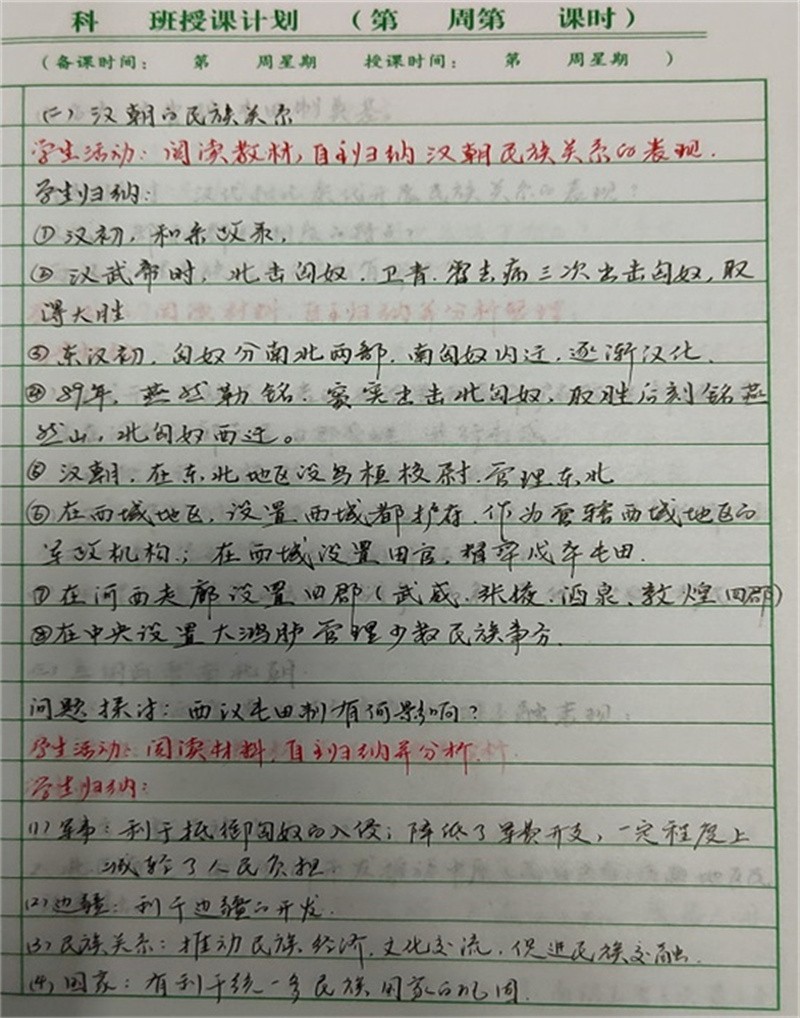 科 班授课计划 （第 周第 课时）
（备课时间： 第 周星期 授课时间： 第 周星期 ）
(二) 汉朝的民族关系
学生活动：阅读教材，自主归纳汉朝民族关系的表现．
学生归纳：
① 汉初，和亲政策，
② 汉武帝时，北击匈奴．卫青．霍去病三次出击匈奴，取
得大胜
③ 东汉初，匈奴分南北两部．南匈奴内迁，逐渐汉化．
④ 89年，燕然勒铭．窦宪出击北匈奴，取胜后刻铭燕
然山，北匈奴西迁。
⑤ 汉朝．在东北地区设乌桓校尉．管理东北
⑥ 在西域地区，设置西域都护府，作为管辖西域地区的
军政机构．；在西域设置田官，戍卒屯田．
⑦ 在河西走廊设置四郡（武威．张掖．酒泉、敦煌四郡）
⑧ 在中央设置大鸿胪管理少数民族事务．
问题探讨：西汉屯田制有何影响？
学生活动：阅读材料，自主归纳并分析．
学生归纳：
(1) 军事：利于抵御匈奴的入侵；降低了军费开支，一定程度上
减轻了人民负担
(2) 边疆：利于边疆的开发．
(3) 民族关系：推动民族经济．文化交流，促进民族交融．
(4) 国家：有利于统一多民族国家的巩固．